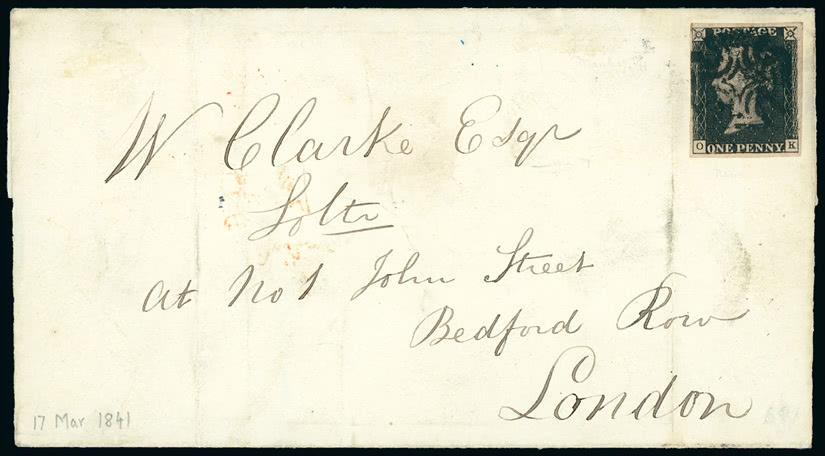 POSTAGE
O ONE PENNY K
W Clarke Esqr
Soltr
at No 1 John Street
Bedford Row
London
17 Mar 1841